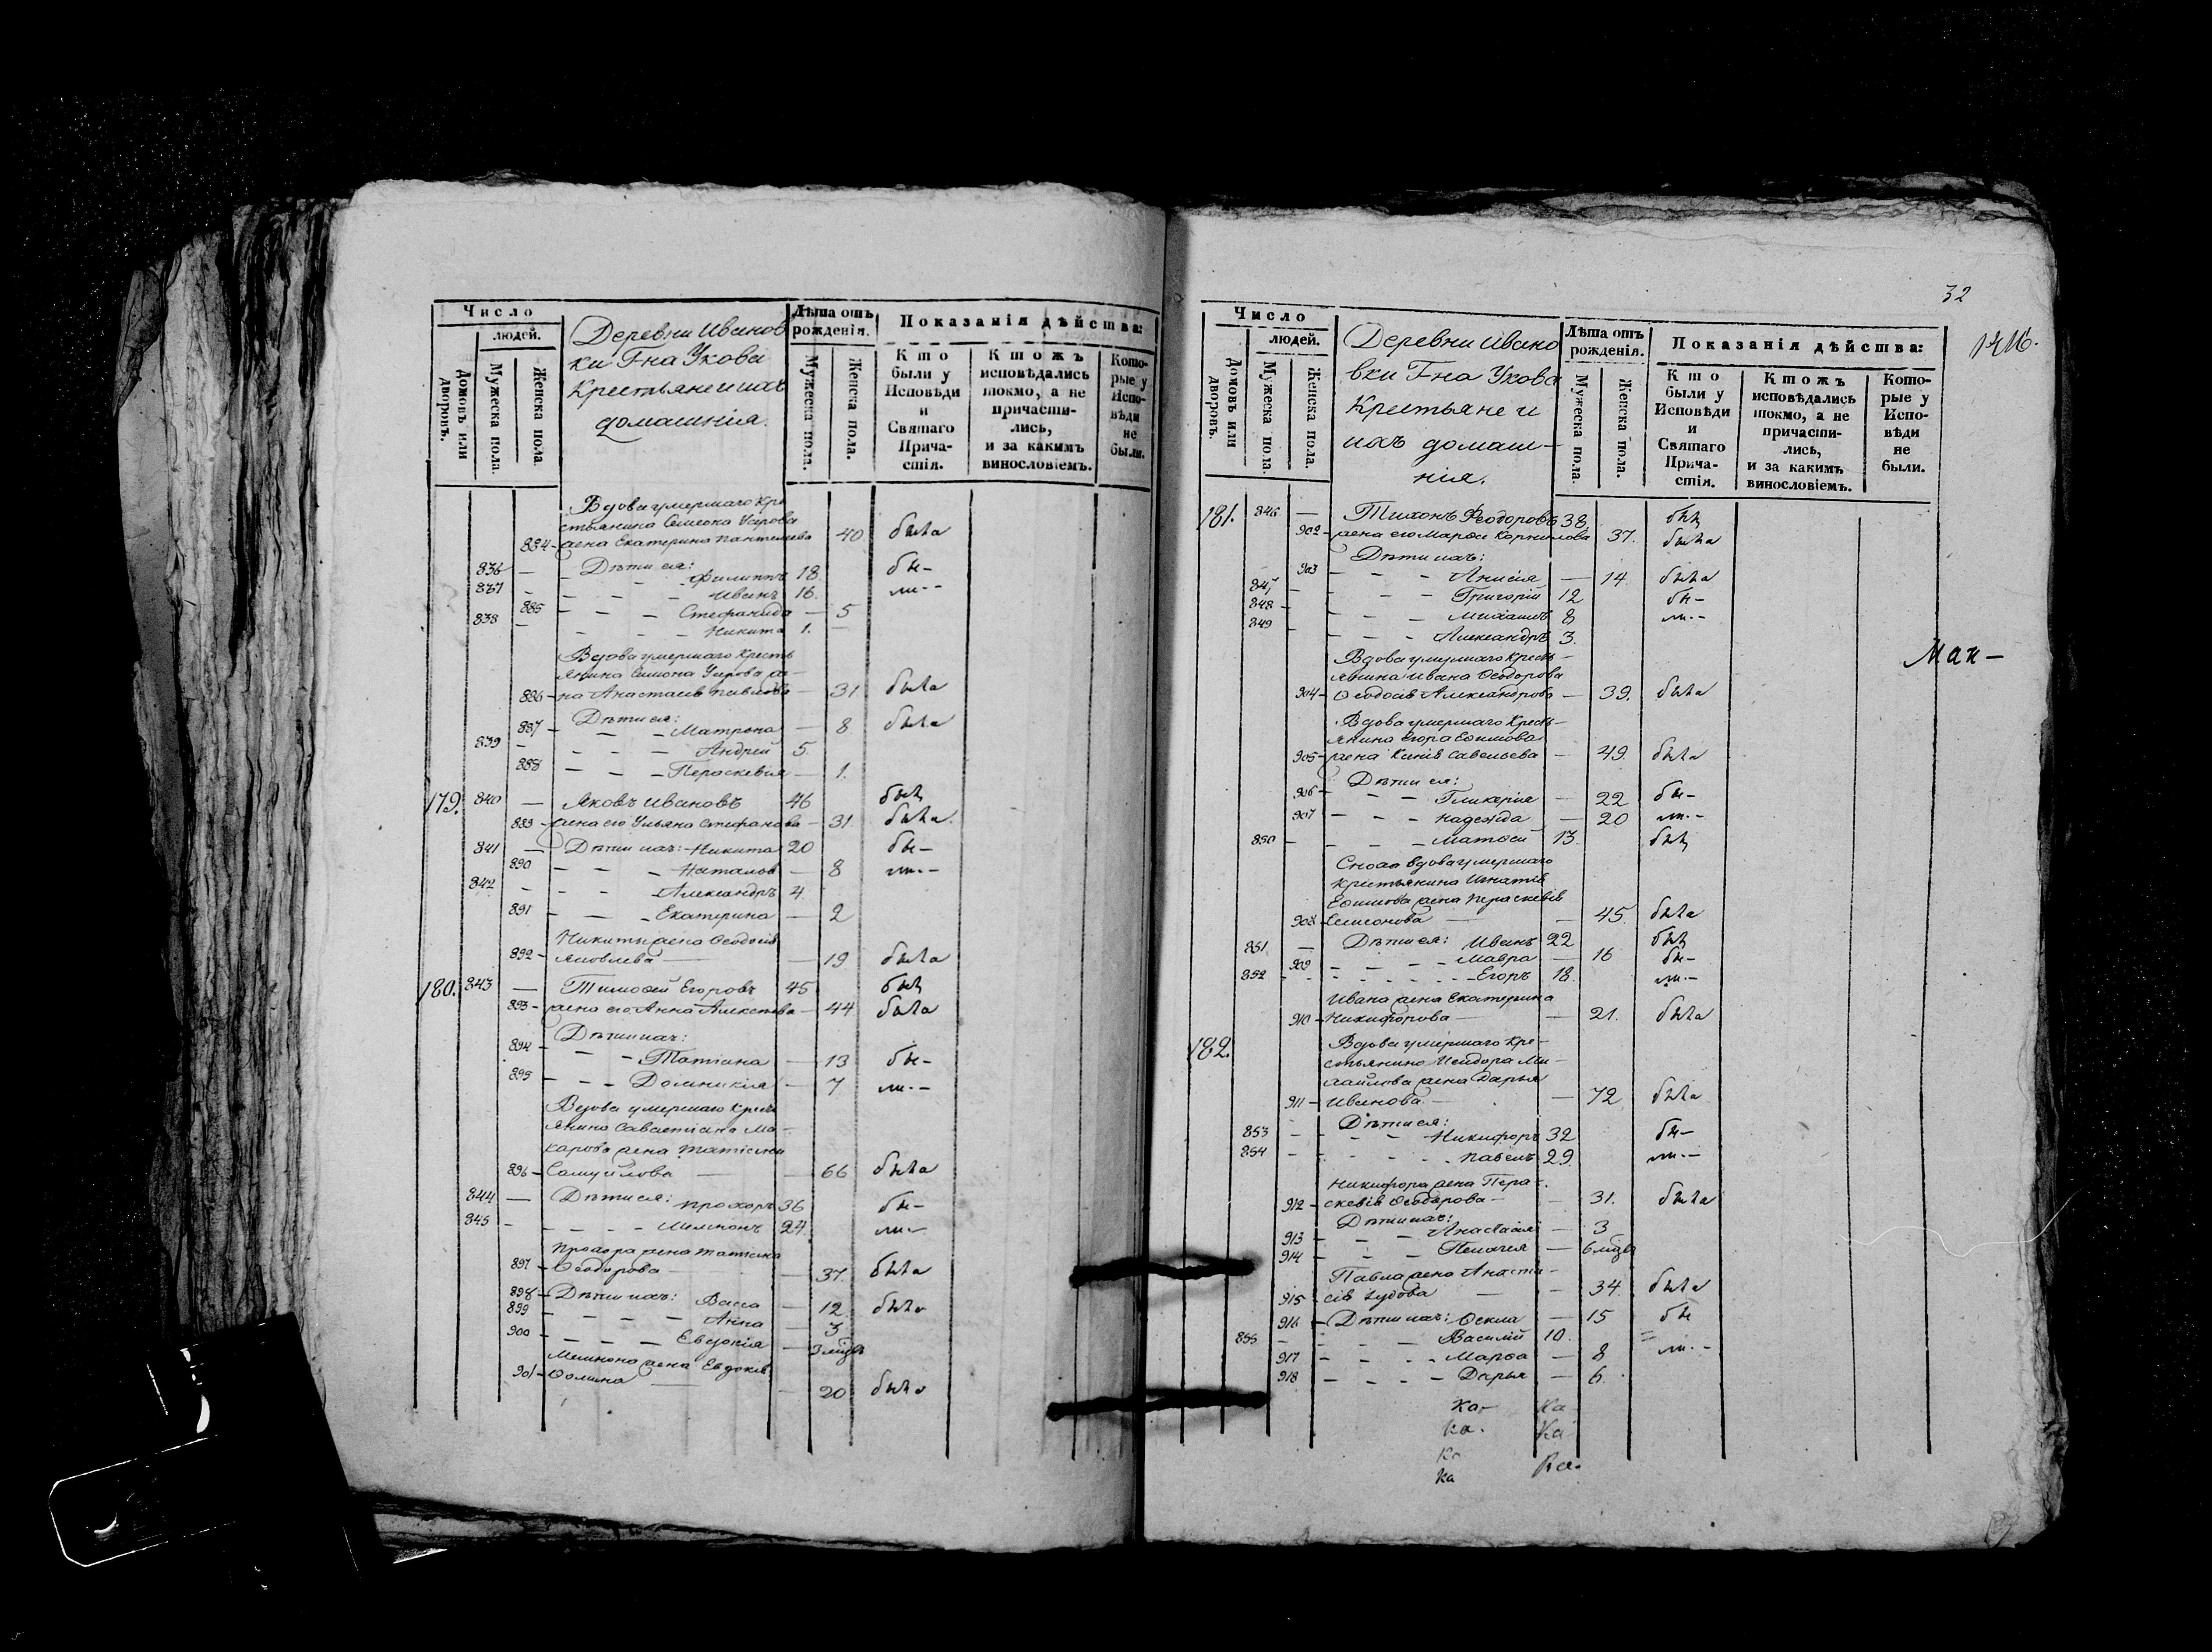 Число
людей.
Домовъ или дворовъ.
Мужеска пола.
Женска пола.
Деревни Иванов
ки Г-на Ухова
Крестьяне и ихъ
домашнія.
Лѣта отъ рожденія.
Мужеска пола.
Женска пола.
Показанія дѣйства:
Кто были у Исповѣди и Святаго Причастія.
Ктожъ исповѣдались токмо, а не причастились, и за какимъ винословіемъ.
Которые у Исповѣди не были.
Вдова умершаго кре
стьянина Симеона
884 - жена Екатерина 40 была
Дѣти ея:
836 — Филиппъ 18 бы-
837 - Иванъ 16. ли--
885 Стефанида — 5
838 - Никита 1. —
Вдова умершаго Кресть
янина Симона же-
886 - на Анастасія Павлова — 31 была
Дѣти ея:
887 - Матрона — 8 была
839 - Андрей 5.
888 — Пераскевія — 1.
179. 840 — Яковъ Ивановъ 46 былъ
889 - жена его Ульяна Стефанова — 31 была
841 — Дѣти ихъ: Никита 20 бы-
890 - Наталія — 8 ли.-
842 - Александръ 4
891 — Екатерина — 2
Никиты жена Ѳеодосія
892 - Яковлева — 19 была
180. 843 — Тимоѳей Егоровъ 45 былъ
893 - жена его Анна Алексѣева — 44 была
Дѣти ихъ:
894 - Татіана — 13 бы-
895 - Домникія — 7 ли.-
Вдова умершаго Кресть
янина Савастіана Ма-
карова жена Татіана
896 - Самуйлова — 66 была
844 — Дѣти ея: Прохоръ 36 бы-
845 - Мемнонъ 24. ли.-
Прохора жена Татіана
897 - Ѳеодорова — 37. была
898 - Дѣти ихъ: Васса — 12 была
899 - Анна — 3
900 - Евдокія — 3 мѣся
Мемнона жена Евдокія
901 - Ѳомина — 20 была
32
1416.
Число
людей.
Домовъ или дворовъ.
Мужеска пола.
Женска пола.
Деревни Ивано
вки Г-на Ухова
Крестьяне и
ихъ домаш-
нія.
Лѣта отъ рожденія.
Мужеска пола.
Женска пола.
Показанія дѣйства:
Кто были у Исповѣди и Святаго Причастія.
Ктожъ исповѣдались токмо, а не причастились, и за какимъ винословіемъ.
Которые у Исповѣди не были.
181. 846 — Тихонъ Ѳеодоровъ 38 былъ
902 - жена его Марѳа Корнилова 37. была
Дѣти ихъ:
903 — Анисія — 14. была
847 - Григорій 12 бы-
848 - Михаилъ 8 ли.-
849 - Александръ 3.
Мак-
Вдова умершаго Кресть-
янина Ивана Ѳеодорова
904 - Ѳеодосія Александрова — 39. была
Вдова умершаго Кресть-
янина Егора Еѳимова
905 - жена Савельева — 49. была
Дѣти ея:
906 - Гликерія — 22 бы-
907 - Надежда — 20 ли.-
850 - Матѳей 13. былъ
Сноха вдова умершаго
крестьянина Игнатія
Еѳимова жена Пераскевія
908 - Симеонова — 45. была
851 — Дѣти ея: Иванъ 22 былъ
909 - Мавра — 16 бы-
852 - Егоръ 18. ли.-
Ивана жена Екатерина
910 - Никифорова — 21. была
182. Вдова умершаго Кре-
стьянина Исидора Ми-
хайлова жена Дарья
911 - Иванова — 72 была
Дѣти ея:
853 - Никифоръ 32 бы-
854 - Павелъ 29 ли.-
Никифора жена Пера-
912 - скевія Ѳеодорова — 31. была
Дѣти ихъ:
913 - Анастасія — 3
914 - Пелагея — 6 мѣся
Павла жена Анаста-
915 - сія — 34. была
916 - Дѣти ихъ: — 15 бы
855 - Василій 10.
917 - Марѳа — 8 ли.-
918 - Дарья — 6.
Ка- Ка
Ка. Ка
Ка
Ка Ка.